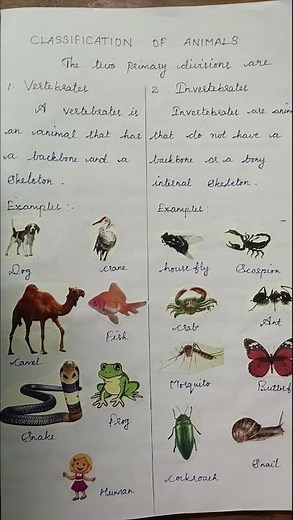 CLASSIFICATION OF ANIMALS
The two primary divisions are
1. Vertebrates
A vertebrates is
an animal that has
a backbone and a
Skeleton.
Examples :-
Dog
Crane
Camel
Fish
Snake
Frog
Human
2. Invertebrates
Invertebrates are anim
that do not have a
backbone or a bony
internal Skeleton.
Examples:
house fly
Scorpion
Crab
Ant
Mosquito
Butterf
Cockroach
Snail